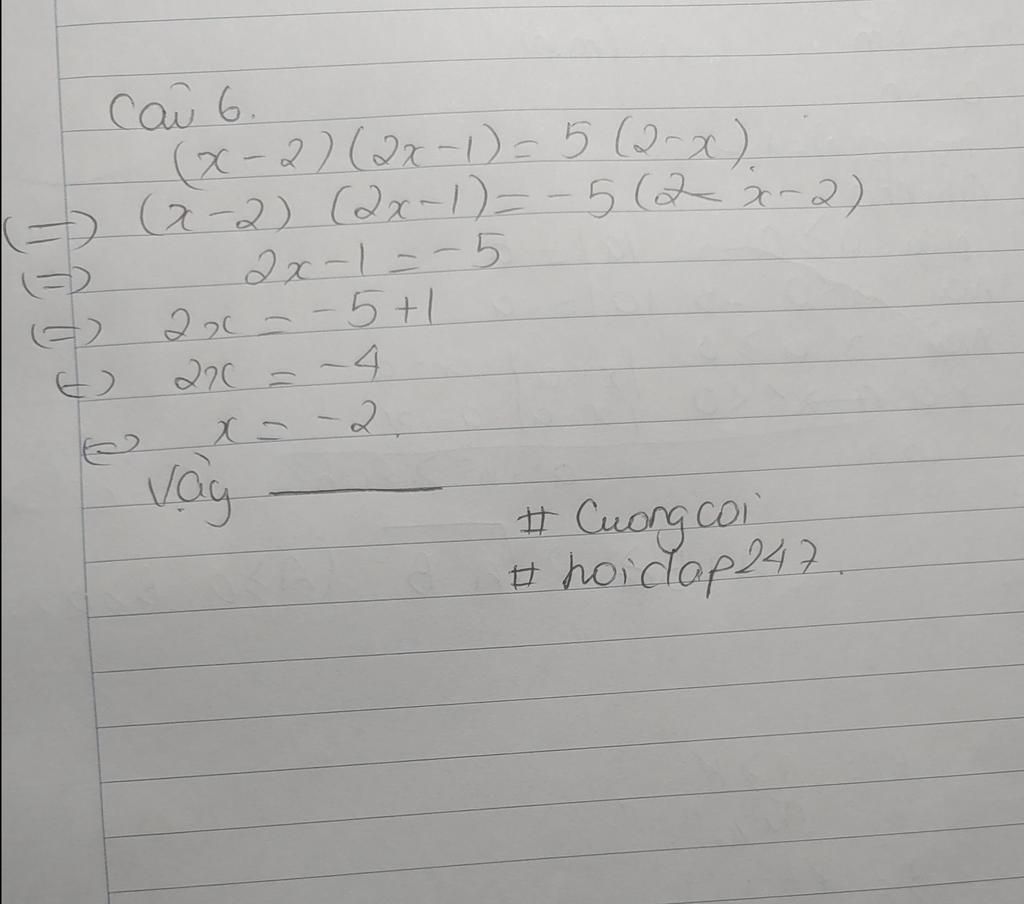 Câu 6.
(x-2)(2x-1)=5(2-x).
(=) (x-2) (2x-1)=-5(x-2)
(=) 2x-1=-5
(=) 2x=-5+1
(=) 2x=-4
(=) x=-2.
Vậy
# Cuongcoi
# hoidap247.